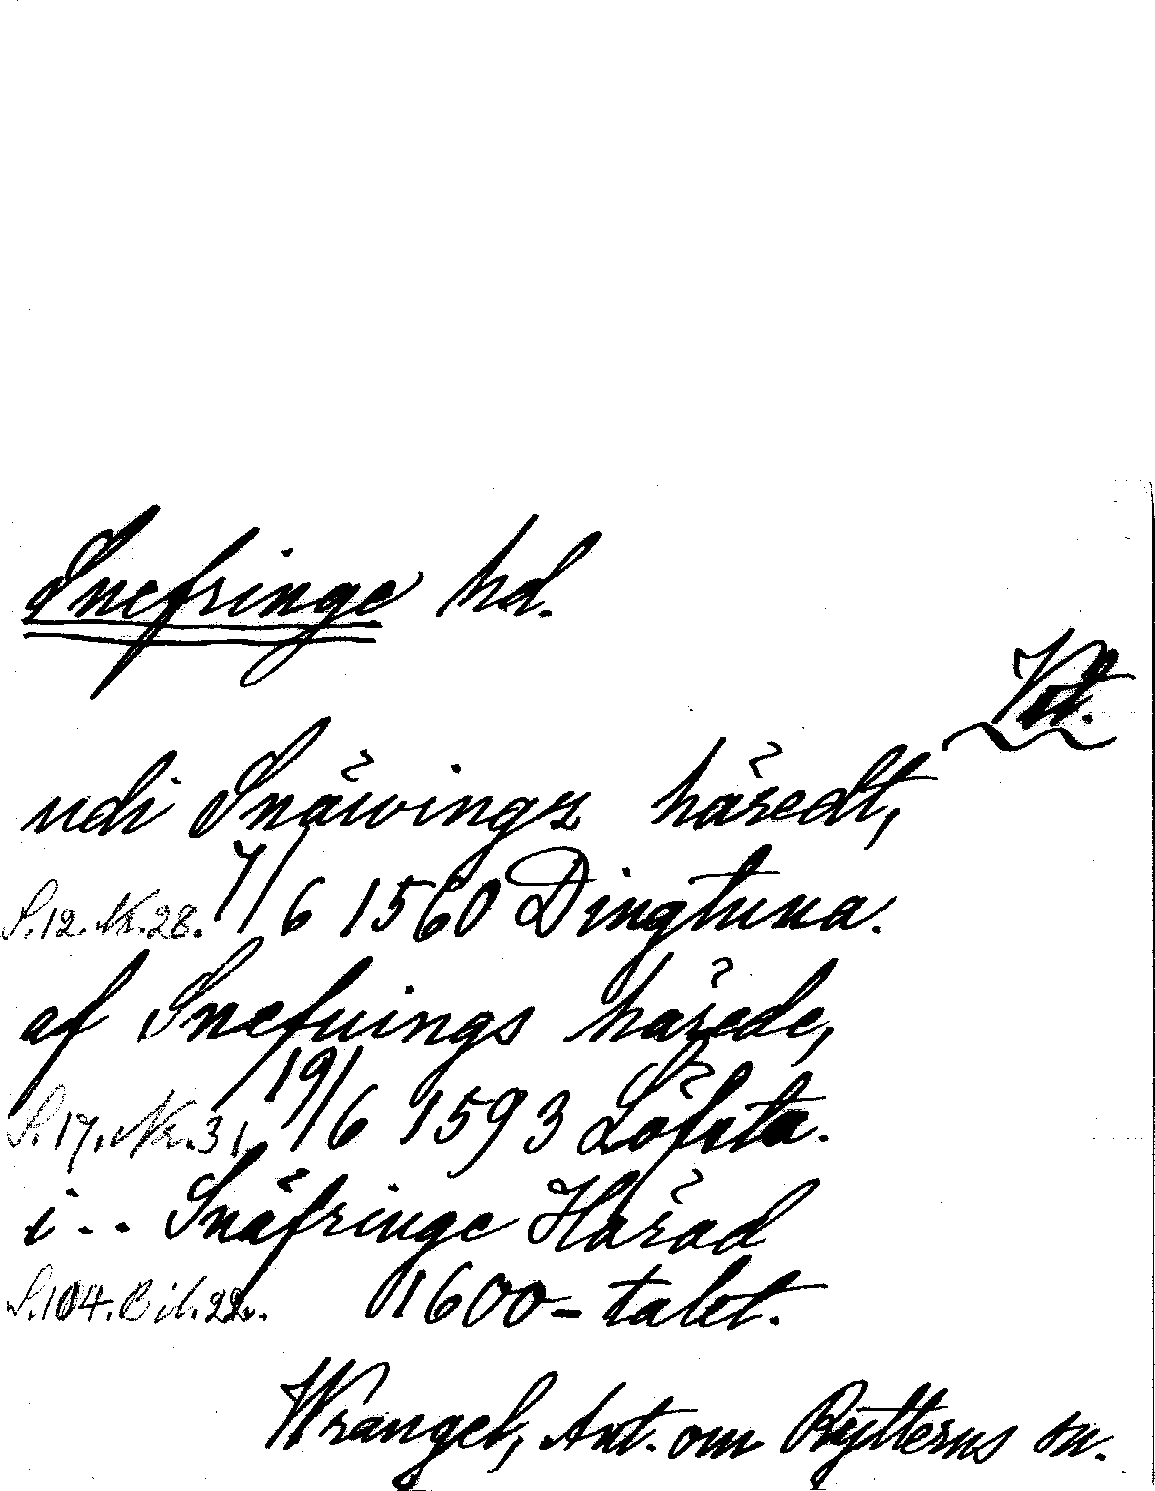 Snefringe hd.
Vstl.
udi Snäwings häredt,
S.12. Nr.28. 7/6 1560 Dingtuna.
af Snefuings härede,
S.17. Nr.31. 19/6 1593 Löfsta.
i - - Snäfringe Härad
S.104. Bil.22. 1600-talet.
Wrangel, Ant. om Rytterns sn.